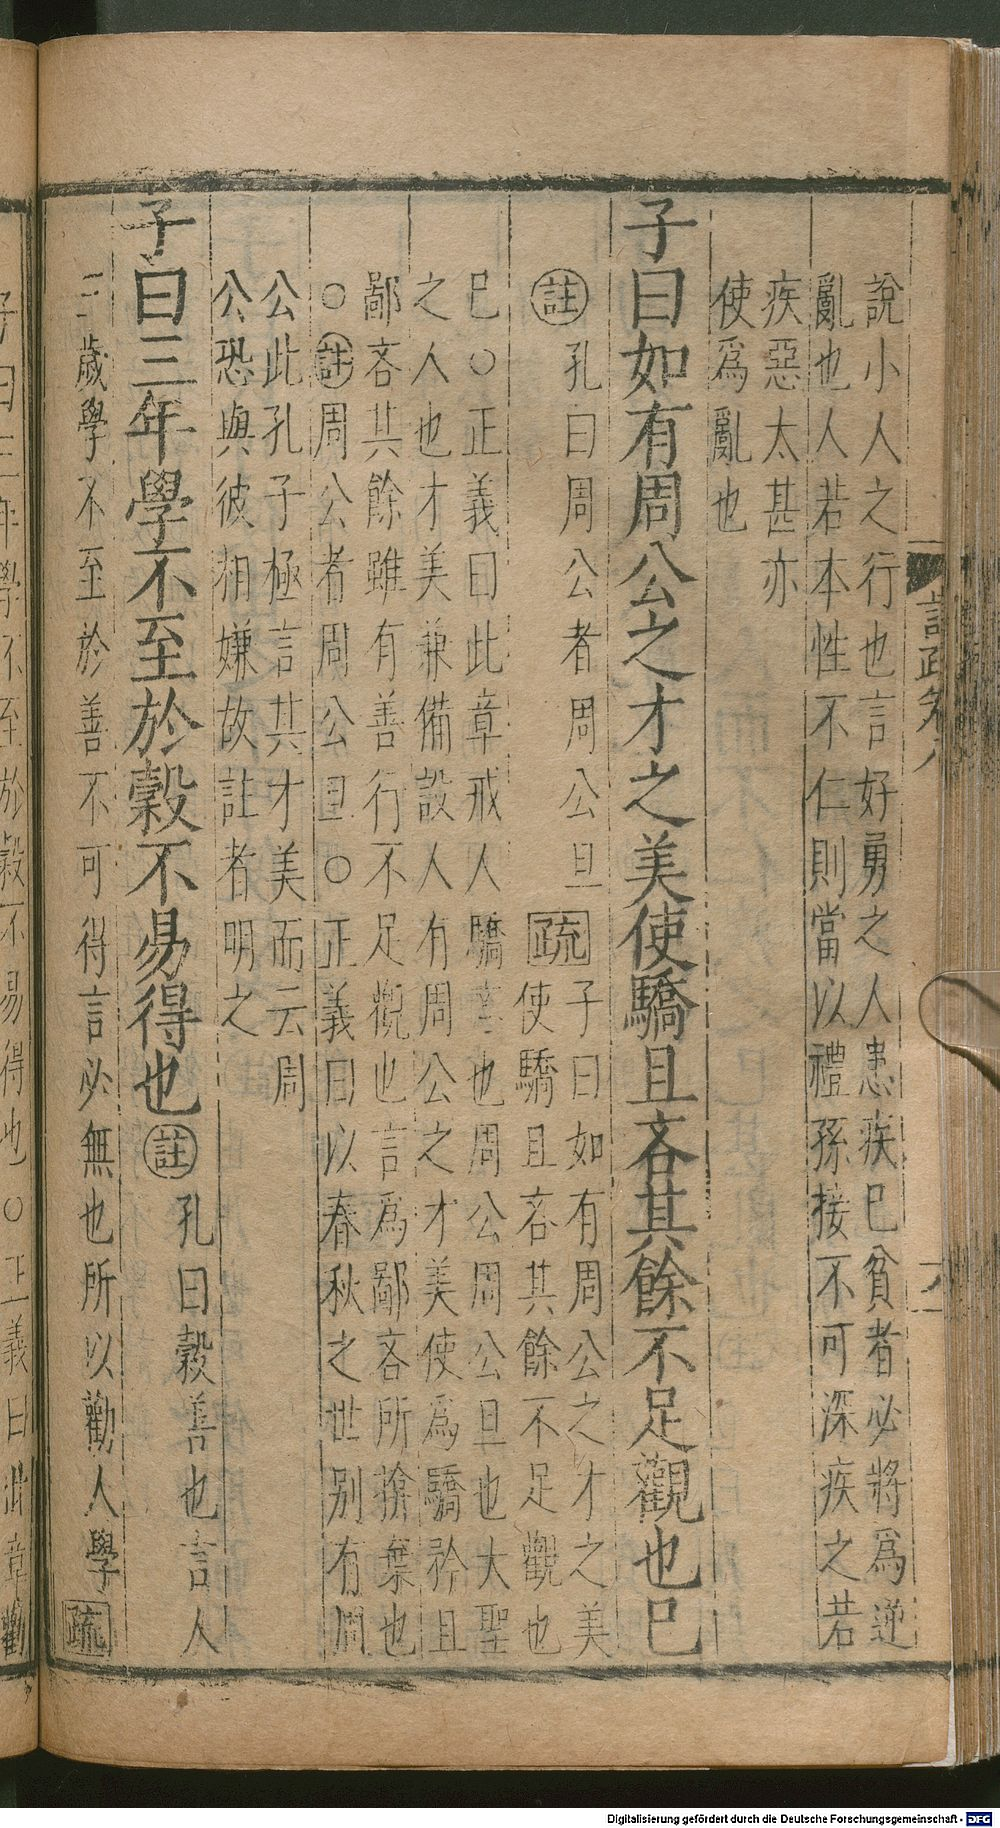 說小人之行也言好勇之人患疾已貧者必將爲逆
亂也人若本性不仁則當以禮孫接不可深疾之若
疾惡太甚亦
使爲亂也
子曰如有周公之才之美使驕且吝其餘不足觀也已
註 孔曰周公者周公旦 疏 子曰如有周公之才之美
使驕且吝其餘不足觀也
已○正義曰此章戒人驕吝也周公周公旦也大聖
之人也才美兼備設人有周公之才美使爲驕矜且
鄙吝其餘雖有善行不足觀也言爲鄙吝所捨棄也
○註周公者周公旦○正義曰以春秋之世別有周
公此孔子極言其才美而云周
公恐與彼相嫌故註者明之
子曰三年學不至於穀不易得也 註 孔曰穀善也言人
三歲學不至於善不可得言必無也所以勸人學 疏
子曰三年學不至於穀不易得也○正義曰此章勸
語疏卷八
Digitalisierung gefördert durch die Deutsche Forschungsgemeinschaft - DFG